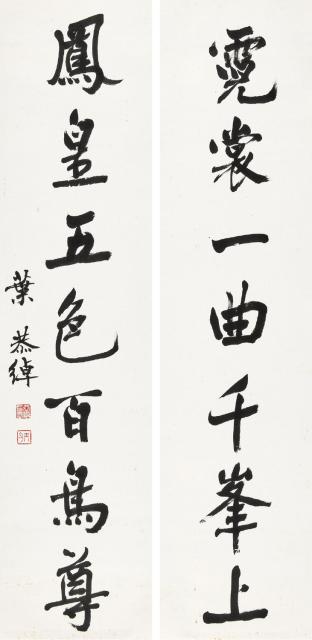 霓裳一曲千峯上
鳳皇五色百鳥尊
葉恭綽